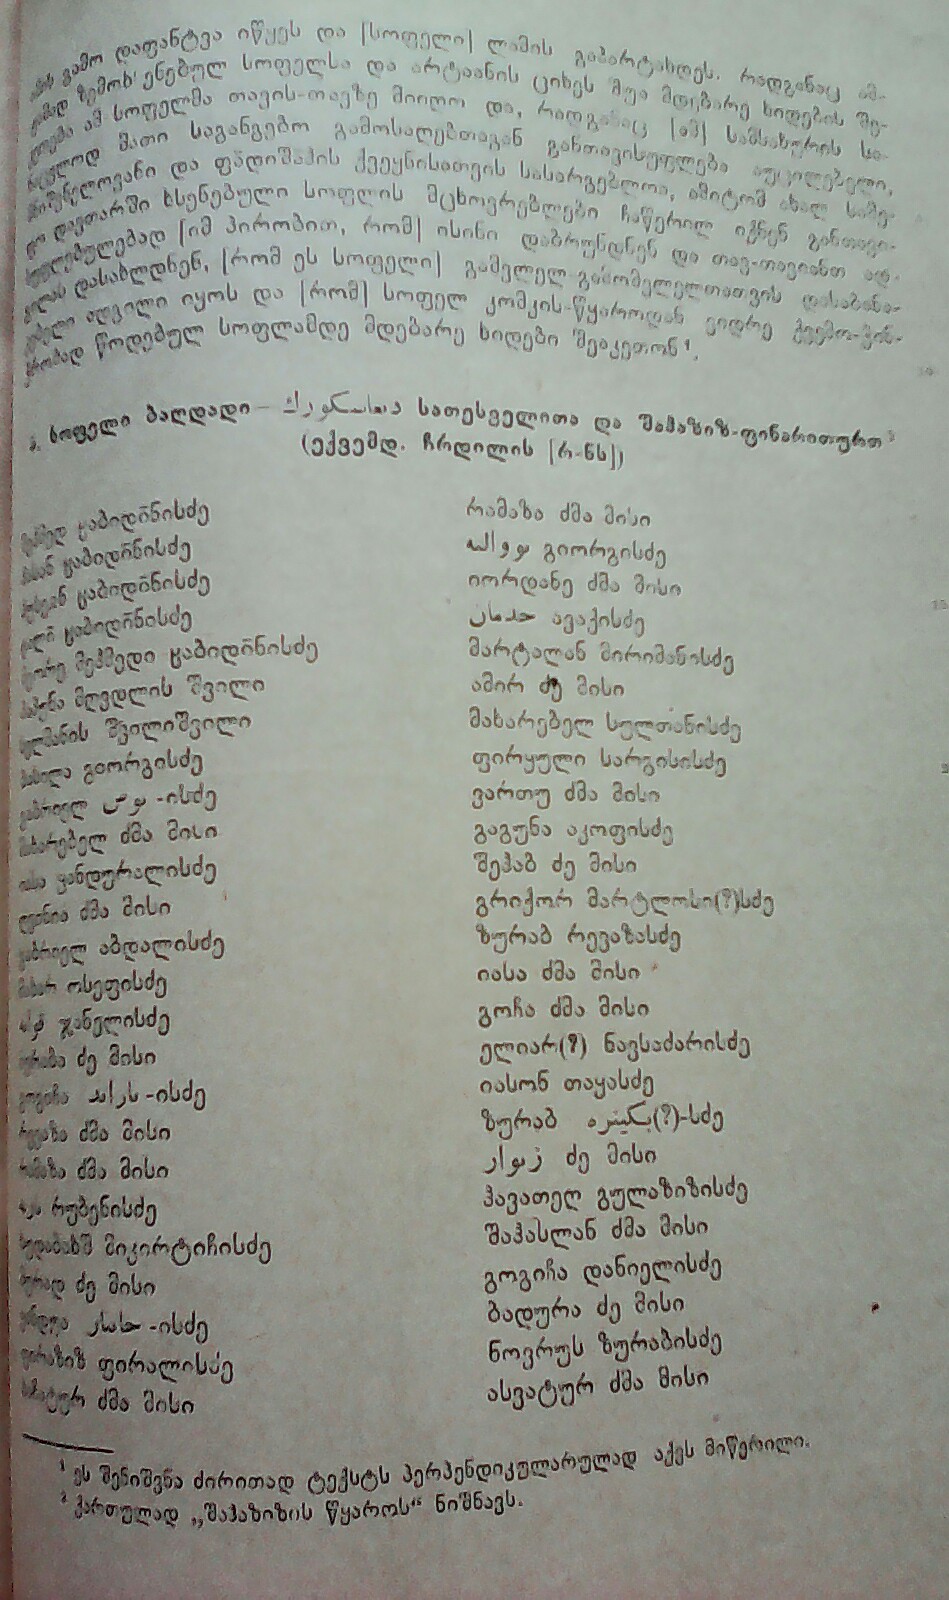 გამო დაფანტვა იწყეს და [სოფელი] ლამის გაპარტახდეს. რადგანაც ამ-
ზემოხსენებულ სოფელსა და არტაანის ციხეს შუა მდებარე ხიდების შე-
ამ სოფელმა თავის-თავზე მიიღო და, რადგანაც [ამ] სამსახურის სა-
მათი საგანგებო გამოსაღებთაგან განთავისუფლება აუცილებელი,
და ფადიშაჰის ქვეყნისათვის სასარგებლოა, ამიტომ ახალ
დავთარში ხსენებული სოფლის მცხოვრებლები ჩაწერილ იქნენ განთავი-
სუფლებულებად [იმ პირობით, რომ] ისინი დაბრუნდნენ და თავ-თავიანთ ად-
გილას დასახლდნენ, [რომ ეს სოფელი] გამვლელ-გამომვლელთათვის დასაბანა-
ადგილი იყოს და [რომ] სოფელ კომკის-წყაროდან ვიდრე
წოდებულ სოფლამდე მდებარე ხიდები შეაკეთონ¹.
სოფელი ბაღდადი – სათესველითა და შაჰაზიზ-ფინარითურთ²
(ექვემდ. ჩრდილის [რ-ნს])
მეჰმედ ყაბიდონისძე
ჰასან ყაბიდონისძე
ჰუსეინ ყაბიდონისძე
ყაბიდონისძე
მეჰმედი ყაბიდონისძე
მღვდლის შვილი
შვილიშვილი
გიორგისძე
გაბრიელ -ისძე
მახარებელ ძმა მისი
იასა ყანდურალისძე
ძმა მისი
გაბრიელ აბდალისძე
ოსეფისძე
ჯანელისძე
ძე მისი
გოგიჩა -ისძე
რევაზა ძმა მისი
რამაზა ძმა მისი
რუბენისძე
ხუდაბახშ მიკირტიჩისძე
მურად ძე მისი
-ისძე
ფირალისძე
ძმა მისი
რამაზა ძმა მისი
გიორგისძე
იორდანე ძმა მისი
ავაქისძე
მარტალან მირიმანისძე
ამირ ძე მისი
მახარებელ სულთანისძე
ფირყული სარგისისძე
ვართუ ძმა მისი
გაგუნა აკოფისძე
შეჰაბ ძე მისი
გრიქორ მარტლოსი(?)სძე
ზურაბ რევაზასძე
იასა ძმა მისი
გოჩა ძმა მისი
ელიარ(?) ნავსაძარისძე
იასონ თაყასძე
ზურაბ (?)-სძე
ძე მისი
ჰავათელ გულაზიზისძე
შაჰასლან ძმა მისი
გოგიჩა დანიელისძე
ბადურა ძე მისი
ნოვრუს ზურაბისძე
ასვატურ ძმა მისი
¹ ეს შენიშვნა ძირითად ტექსტს პერპენდიკულარულად აქვს მიწერილი.
² ქართულად „შაჰაზიზის წყაროს“ ნიშნავს.